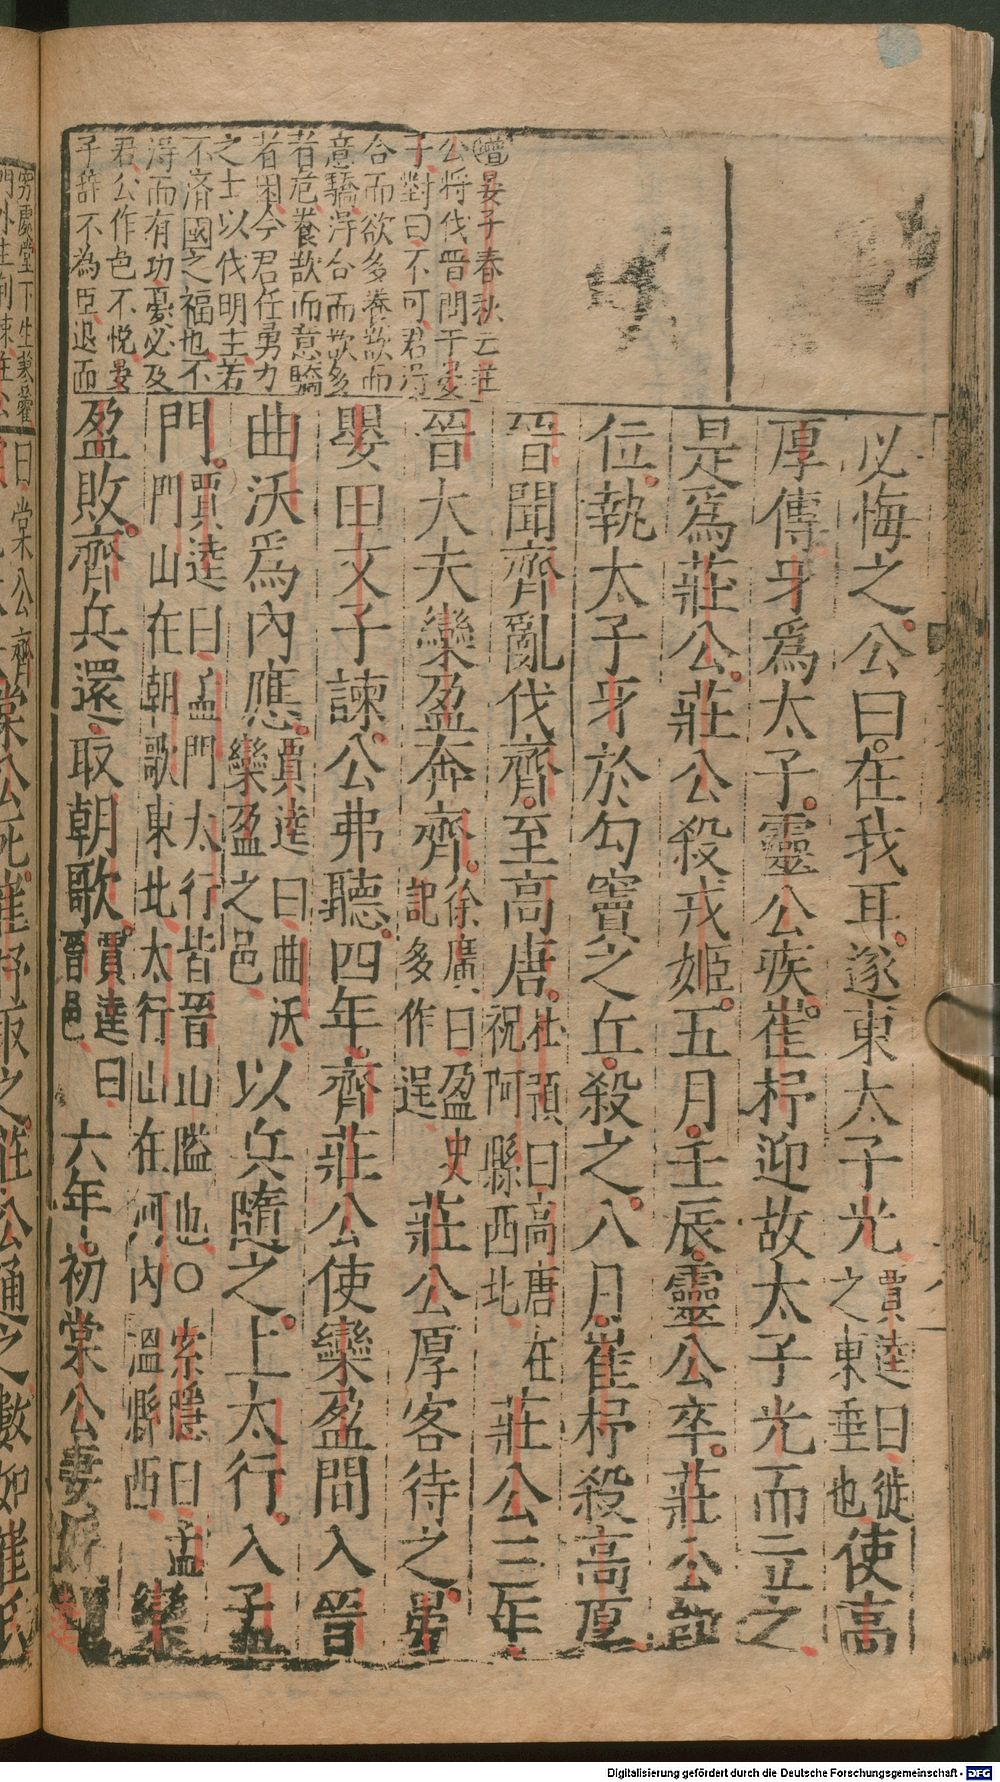 必悔之公曰在我耳遂東太子光賈逵曰徙之東垂也使高
厚傅牙爲太子靈公疾崔杼迎故太子光而立之
是爲莊公莊公殺戎姬五月壬辰靈公卒莊公卽
位執太子牙於勾竇之丘殺之八月崔杼殺高厚
晉聞齊亂伐齊至高唐杜預曰高唐在祝阿縣西北莊公三年
晉大夫欒盈奔齊徐廣曰盈史記多作逞莊公厚客待之晏
嬰田文子諫公弗聽四年齊莊公使欒盈間入晉
曲沃爲內應賈逵曰曲沃欒盈之邑以兵隨之上太行入孟
門賈逵曰孟門太行皆晉山隘也○索隱曰孟門山在朝歌東北太行山在河內溫縣西欒
盈敗齊兵還取朝歌賈逵曰晉邑六年初棠公妻好
增晏子春秋云莊
公將伐晉問于晏
子對曰不可君得
合而欲多養欲而
意驕得合而欲多
者危養欲而意驕
者困今君任勇力
之士以伐明主若
不濟國之福也不
得而有功憂必及
君公作色不悅晏
子辭不為臣退而
Digitalisierung gefördert durch die Deutsche Forschungsgemeinschaft - DFG